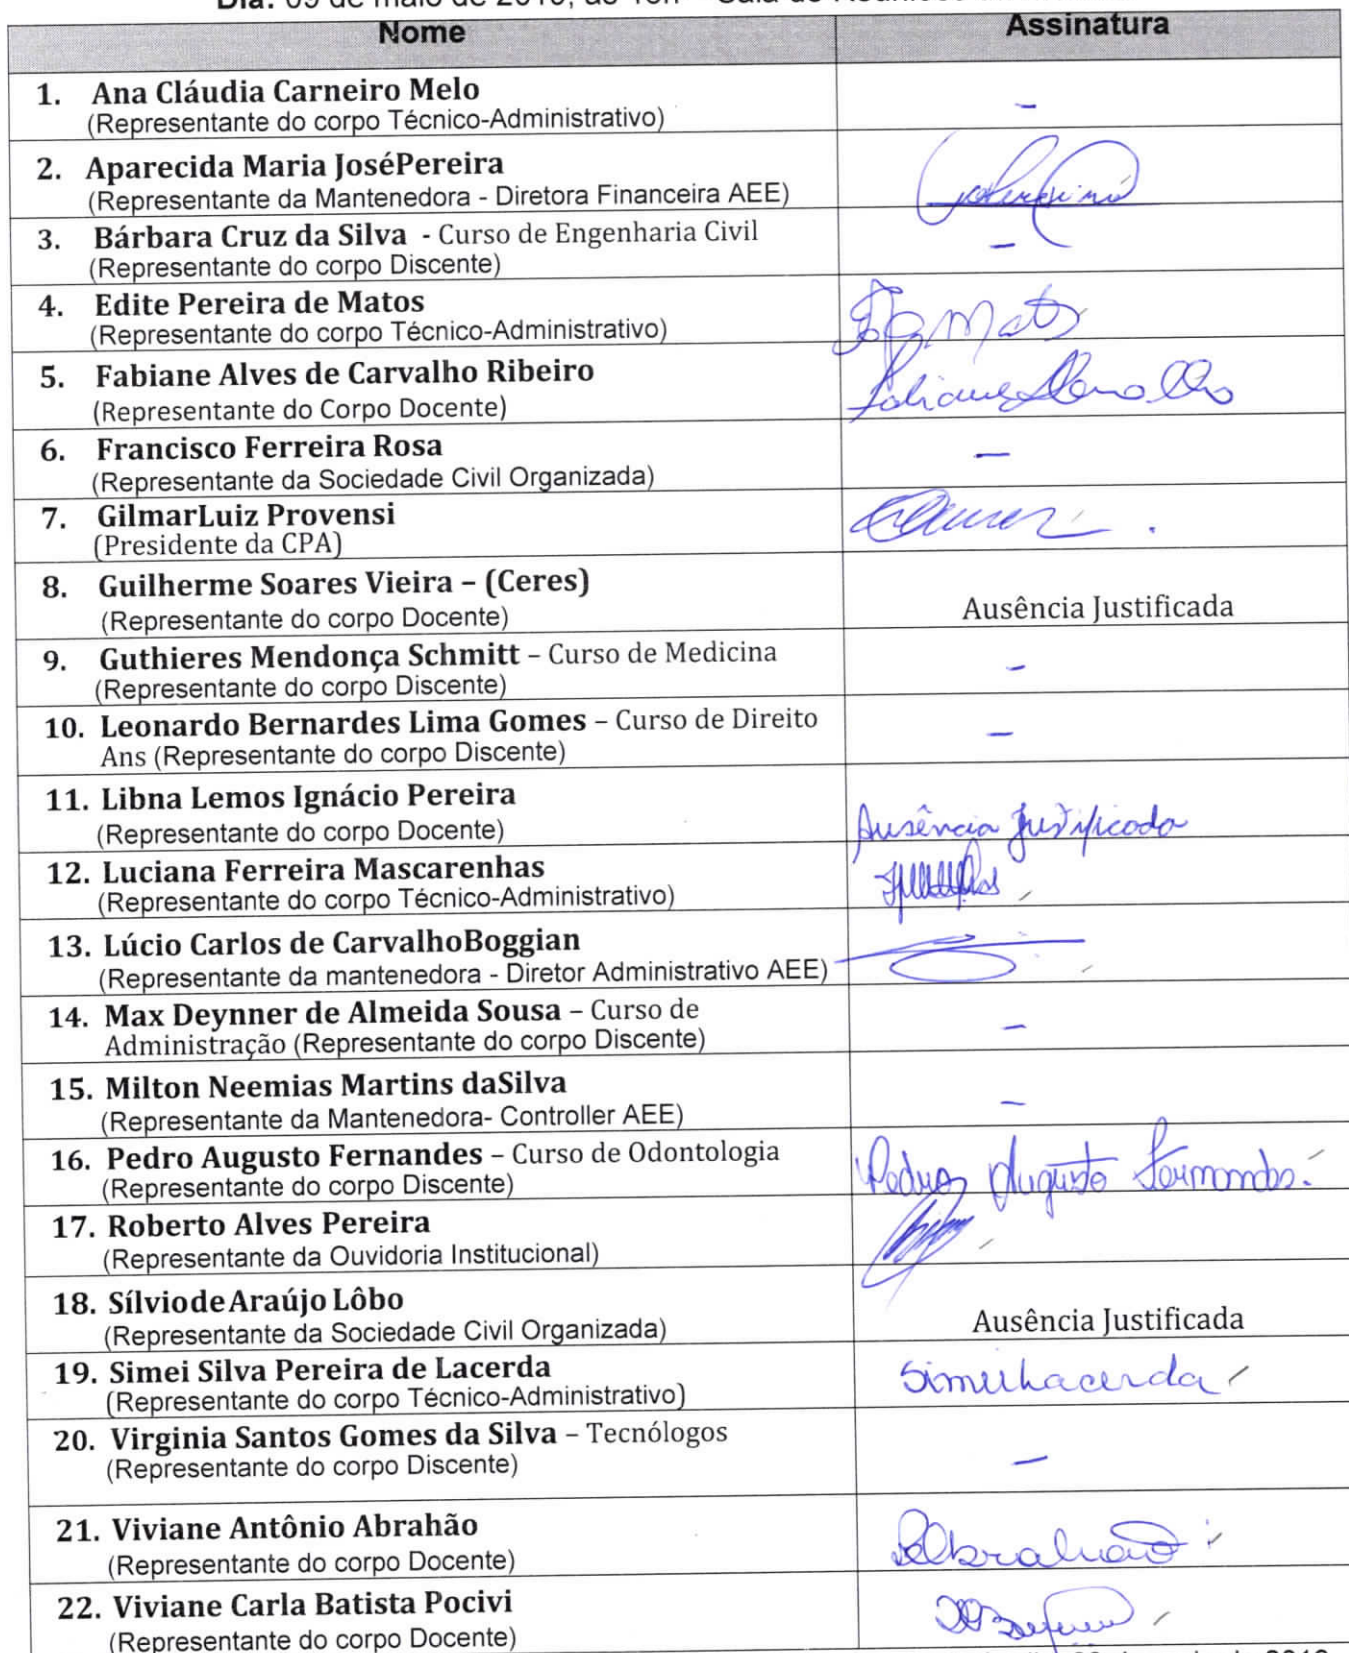 Nome Assinatura
1. Ana Cláudia Carneiro Melo
(Representante do corpo Técnico-Administrativo) -
2. Aparecida Maria JoséPereira
(Representante da Mantenedora - Diretora Financeira AEE)
3. Bárbara Cruz da Silva - Curso de Engenharia Civil
(Representante do corpo Discente) -
4. Edite Pereira de Matos
(Representante do corpo Técnico-Administrativo)
5. Fabiane Alves de Carvalho Ribeiro
(Representante do Corpo Docente)
6. Francisco Ferreira Rosa
(Representante da Sociedade Civil Organizada) -
7. GilmarLuiz Provensi
(Presidente da CPA)
8. Guilherme Soares Vieira – (Ceres)
(Representante do corpo Docente) Ausência Justificada
9. Guthieres Mendonça Schmitt – Curso de Medicina
(Representante do corpo Discente) -
10. Leonardo Bernardes Lima Gomes – Curso de Direito
Ans (Representante do corpo Discente) -
11. Libna Lemos Ignácio Pereira
(Representante do corpo Docente) Ausência Justificada
12. Luciana Ferreira Mascarenhas
(Representante do corpo Técnico-Administrativo)
13. Lúcio Carlos de CarvalhoBoggian
(Representante da mantenedora - Diretor Administrativo AEE)
14. Max Deynner de Almeida Sousa – Curso de
Administração (Representante do corpo Discente) -
15. Milton Neemias Martins daSilva
(Representante da Mantenedora- Controller AEE) -
16. Pedro Augusto Fernandes – Curso de Odontologia
(Representante do corpo Discente) Pedro Augusto Fernandes.
17. Roberto Alves Pereira
(Representante da Ouvidoria Institucional)
18. SílviodeAraújo Lôbo
(Representante da Sociedade Civil Organizada) Ausência Justificada
19. Simei Silva Pereira de Lacerda
(Representante do corpo Técnico-Administrativo) Simei Lacerda
20. Virginia Santos Gomes da Silva – Tecnólogos
(Representante do corpo Discente) -
21. Viviane Antônio Abrahão
(Representante do corpo Docente)
22. Viviane Carla Batista Pocivi
(Representante do corpo Docente)